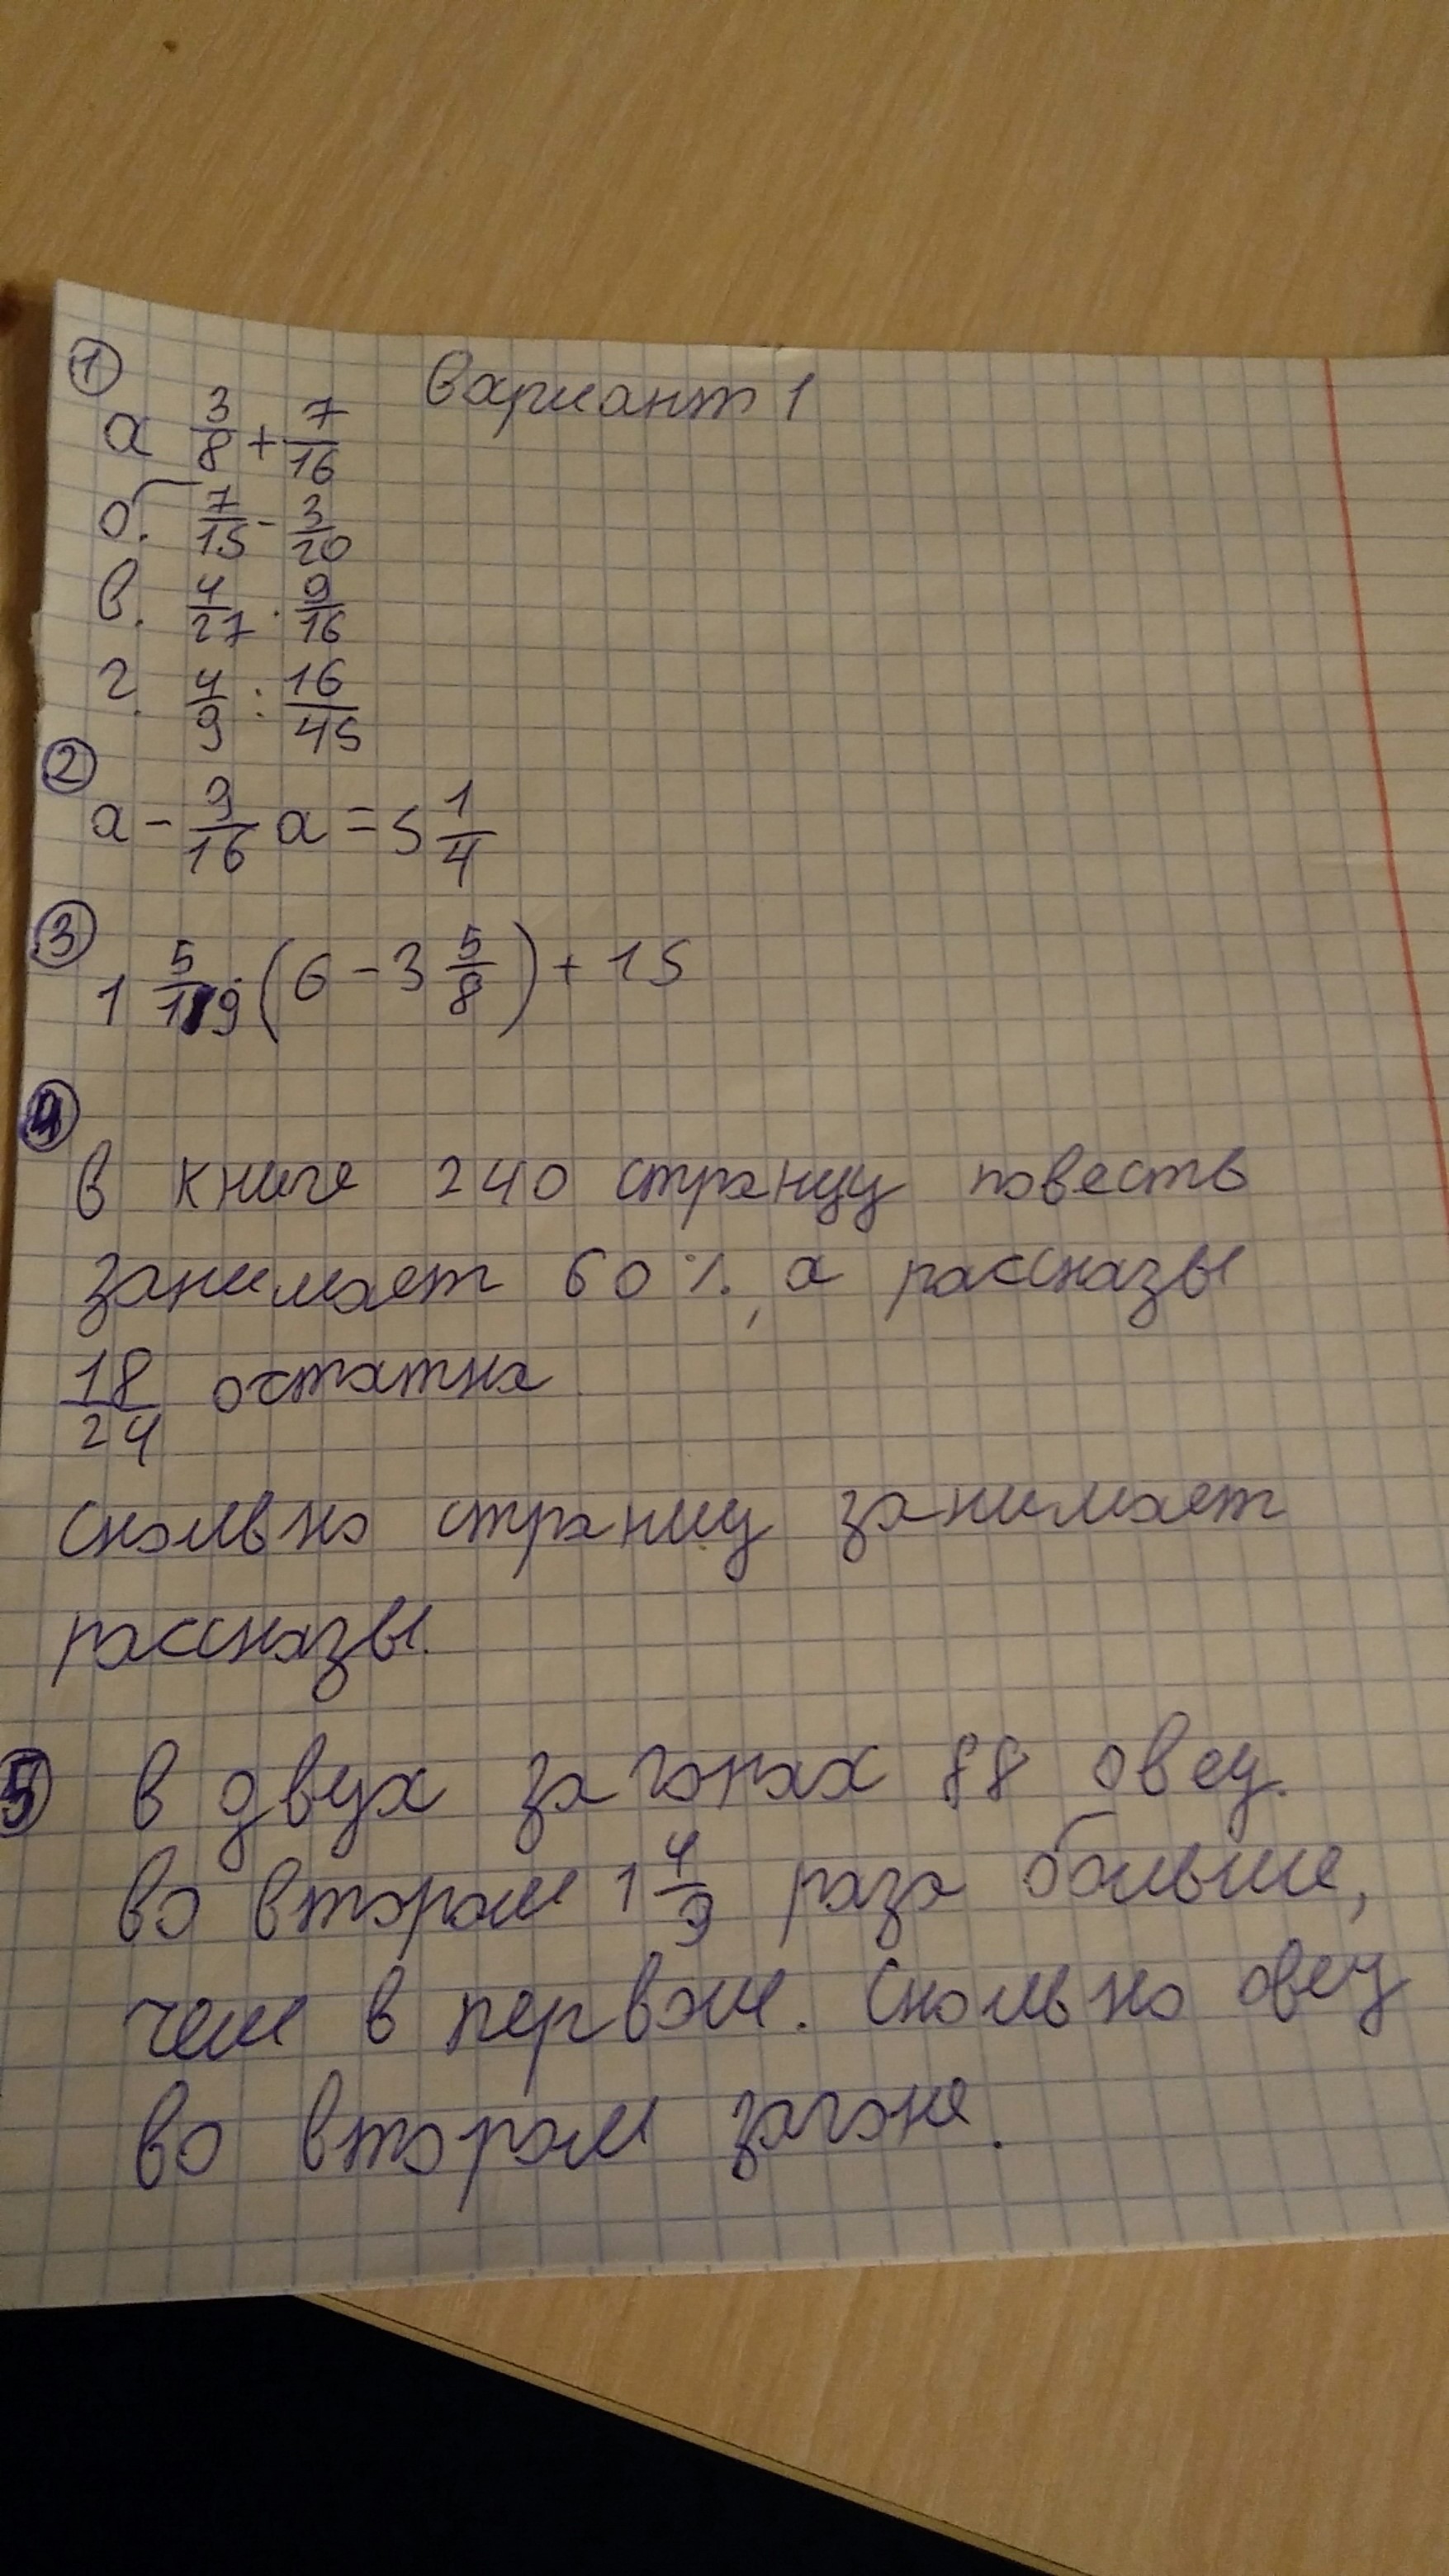 Вариант 1
①
а 3/8 + 7/16
б. 7/15 - 3/20
в. 4/27 · 9/16
г. 4/9 : 16/45
②
a - 9/16 a = 5 1/4
③
1 5/19 · (6 - 3 5/8) + 15
④
В книге 240 страниц повесть
занимает 60%, а рассказы
18/24 остатка
Сколько страниц занимает
рассказы.
⑤ В двух загонах 88 овец.
Во втором 1 4/9 раза больше,
чем в первом. Сколько овец
во втором загоне.